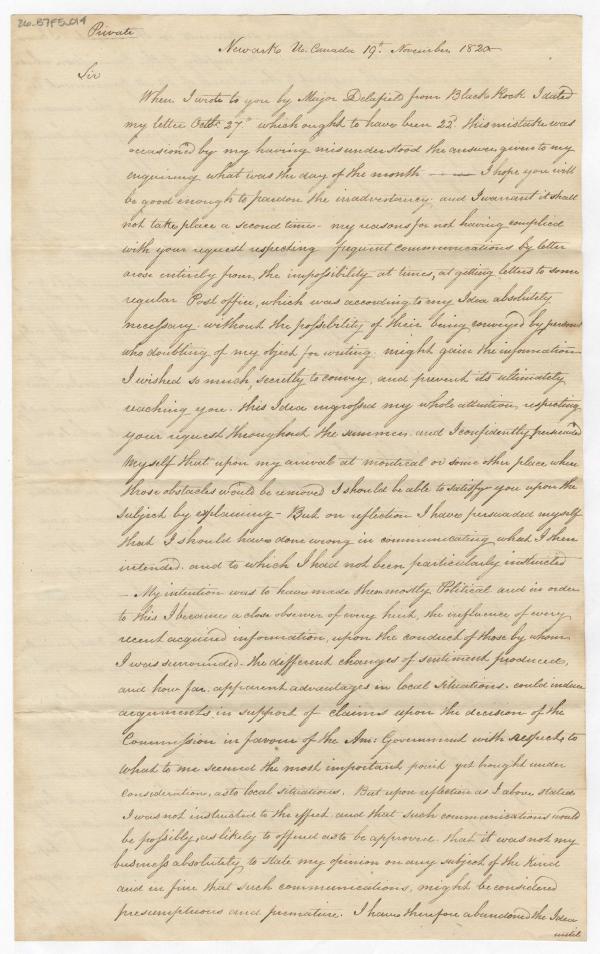 Private
Newark U. Canada 19th November 1820
Sir
When I wrote to you by Major Delafield from Black Rock I dated
my letter Octbr 27th which ought to have been 22d. this mistake was
occasioned by my having misunderstood the answer given to my
enquiring what was the day of the month — — I hope you will
be good enough to pardon the inadvertancy and I warrant it shall
not take place a second time - my reasons for not having complied
with your request respecting frequent communications by letter
arose entirely from the impossibility at times, at getting letters to some
regular Post office, which was according to my Idea absolutely
necessary without the possibility of their being conveyed by persons
who doubting of my object for writing might gain the information
I wished so much, secretly to convey, and prevent its ultimately
reaching you. this Idea engrossed my whole attention, respecting
your request throughout the summer and I confidently persuaded
myself that upon my arrival at montreal or some other place where
those obstacles would be removed I should be able to satisfy you upon the
subject by explaining - But on reflection I have persuaded myself
that I should have done wrong in communicating what I then
intended and to which I had not been particularly instructed
- My intention was to have made them mostly Political and in order
to this I became a close observer of every hint, the influence of every
recent acquired information, upon the conduct of those by whom
I was surrounded. the different changes of sentiment produced,
and how far apparent advantages in local situations could induce
arguments in support of claims upon the decision of the
Commission in favour of the Am: Government with respect to
what to me seemed the most important point yet brought under
consideration, as to local situations. But upon reflection as I above stated
I was not instructed to the effect and that such communications would
be possibly as likely to offend as to be approved that it was not my
business absolutely to state my opinion on any subject of the kind
and in fine that such communications, might be considered
presumptuous and premature. I have therefore abandoned the Idea
until